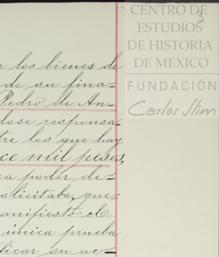 CENTRO DE
ESTUDIOS
DE HISTORIA
DE MEXICO
FUNDACIÓN
Carlos Slim
e los bienes de
de su fina-
Pedro de An-
dose responsa-
tre los que hay
ce mil pesos,
ra poder de-
olicitaba, que
anifiestó el
única prueba
ficar su ac-